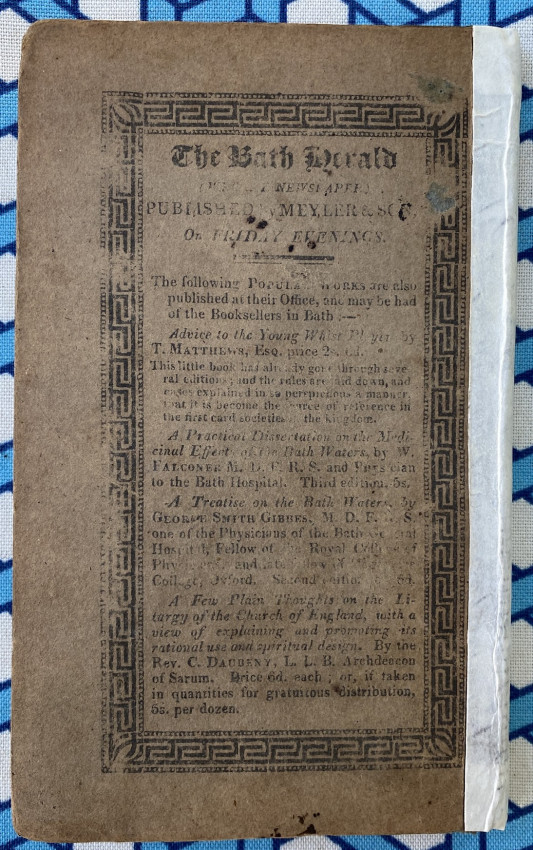 The Bath Herald
NEWSPAPER)
PUBLISHED MEYLER & SON,
On FRIDAY EVENINGS.
The following POPULAR WORKS are also
published at their Office, and may be had
of the Booksellers in Bath :—
Advice to the Young Whist Player by
T. MATTHEWS, ESQ. price
This little book has already gone through seve
ral editions; and the rules are laid down, and
cases explained in so perspicuous a manner,
that it is become the source of reference in
the first card societies in the kingdom.
A Practical Dissertation on the Medi-
cinal Effects of the Bath Waters, by W.
FALCONER M. D. F. R. S. and Physician
to the Bath Hospital. Third edition, 5s.
A Treatise on the Bath Waters, by
GEORGE SMITH GIBBES, M. D. F. S.
one of the Physicians of the Bath
Hospital, Fellow of the Royal College of
and late Fellow of
College, Oxford. Second edition, 6d.
A Few Plain Thoughts on the Li-
turgy of the Church of England, with a
view of explaining and promoting its
rational use and spiritual design. By the
Rev. C. DAUBENY, L. L. B. Archdeacon
of Sarum. Price 6d. each; or, if taken
in quantities for gratuitous distribution,
5s. per dozen.